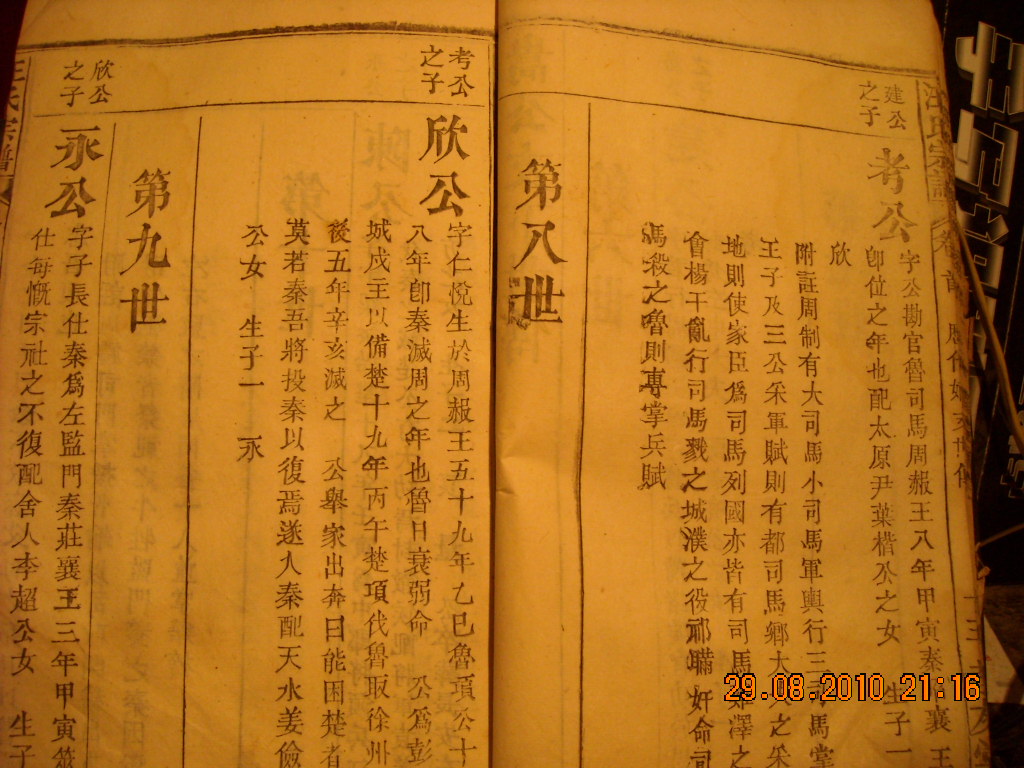 建公
之子
考公
字公勘官魯司馬周赧王八年甲寅秦襄王
卽位之年也配太原尹葉楷公之女 生子一
欣
附註周制有大司馬小司馬軍輿行三司馬掌
王子及三公采軍賦則有都司馬鄉大夫之采
地則使家臣爲司馬列國亦皆有司馬雞澤之
會楊干亂行司馬戮之城濮之役祁瞞奸命司
馮殺之魯則專掌兵賦
第八世
考公
之子
欣公
字仁悅生於周赧王五十九年乙巳魯頃公十
八年卽秦滅周之年也魯日衰弱命 公爲彭
城戍主以備楚十九年丙午楚頃伐魯取徐州
後五年辛亥滅之 公舉家出奔曰能困楚者
莫若秦吾將投秦以復焉遂入秦配天水姜儉
公女 生子一 永
第九世
欣公
之子
永公
字子長仕秦爲左監門秦莊襄王三年甲寅筮
仕每慨宗社之不復配舍人李超公女 生子
氏宗譜
29.08.2010 21:16